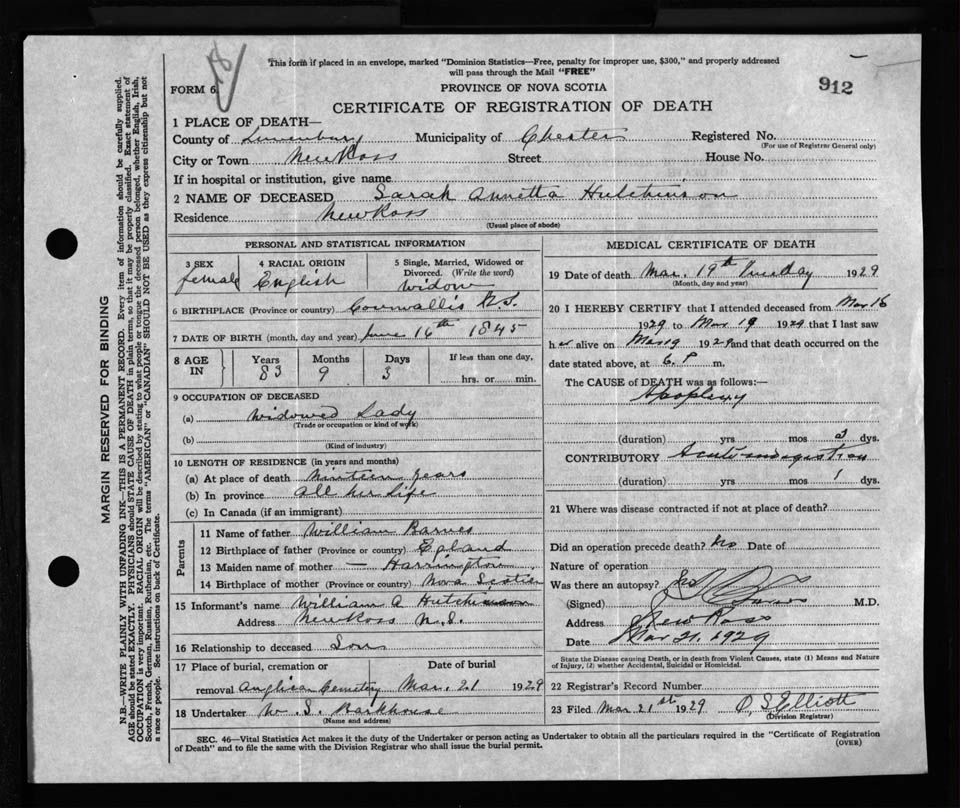 This form if placed in an envelope, marked "Dominion Statistics—Free, penalty for improper use, $300," and properly addressed
will pass through the Mail "FREE"
FORM 6.
PROVINCE OF NOVA SCOTIA
912
CERTIFICATE OF REGISTRATION OF DEATH
1 PLACE OF DEATH—
County of Lunenburg Municipality of Chester Registered No.
(For use of Registrar General only)
City or Town New Ross Street House No.
If in hospital or institution, give name
2 NAME OF DECEASED Sarah Annetta Hutchinson
Residence New Ross
(Usual place of abode)
PERSONAL AND STATISTICAL INFORMATION
3 SEX 4 RACIAL ORIGIN 5 Single, Married, Widowed or
Divorced. (Write the word)
female English Widow
6 BIRTHPLACE (Province or country) Cornwallis N.S.
7 DATE OF BIRTH (month, day and year) June 16th 1845
8 AGE IN Years Months Days If less than one day,
83 9 3 hrs. or min.
9 OCCUPATION OF DECEASED
(a) Widowed Lady
(Trade or occupation or kind of work)
(b)
(Kind of industry)
10 LENGTH OF RESIDENCE (in years and months)
(a) At place of death Nineteen years
(b) In province all her life
(c) In Canada (if an immigrant)
Parents
11 Name of father William Barnes
12 Birthplace of father (Province or country) Egland
13 Maiden name of mother — Harrington
14 Birthplace of mother (Province or country) Nova Scotia
15 Informant's name William A Hutchinson
Address New Ross N.S.
16 Relationship to deceased Son
17 Place of burial, cremation or Date of burial
removal Anglican Cemetery Mar. 21 1929
18 Undertaker W. S. Barkhouse
(Name and address)
MEDICAL CERTIFICATE OF DEATH
19 Date of death Mar. 19th Tuesday 1929
(Month, day and year)
20 I HEREBY CERTIFY that I attended deceased from Mar 16
1929 to Mar 19 1929 that I last saw
her alive on Mar 19 1929 and that death occurred on the
date stated above, at 6. P m.
The CAUSE of DEATH was as follows:—
Apoplexy
(duration) yrs mos 3 dys.
CONTRIBUTORY Acute indigestion
(duration) yrs mos 1 dys.
21 Where was disease contracted if not at place of death?
Did an operation precede death? No Date of
Nature of operation
Was there an autopsy? No
(Signed) M.D.
Address New Ross
Date Mar 21. 1929
State the Disease causing Death, or in death from Violent Causes, state (1) Means and Nature
of Injury, (2) whether Accidental, Suicidal or Homicidal.
22 Registrar's Record Number
23 Filed Mar 21st 1929 O. S. Elliott
(Division Registrar)
SEC. 46—Vital Statistics Act makes it the duty of the Undertaker or person acting as Undertaker to obtain all the particulars required in the "Certificate of Registration
of Death" and to file the same with the Division Registrar who shall issue the burial permit.
(OVER)
MARGIN RESERVED FOR BINDING
N.B.—WRITE PLAINLY WITH UNFADING INK—THIS IS A PERMANENT RECORD. Every item of information should be carefully supplied.
AGE should be stated EXACTLY. PHYSICIANS should STATE CAUSE OF DEATH in plain terms, so that it may be properly classified. Exact statement of
OCCUPATION is very important. RACIAL ORIGIN will be described by stating to what people or tongue the deceased person belonged, whether English, Irish,
Scotch, French, German, Russian, Ruthenian, etc. The terms "AMERICAN" or "CANADIAN" SHOULD NOT BE USED as they express citizenship but not
a race or people. See instructions on back of Certificate.